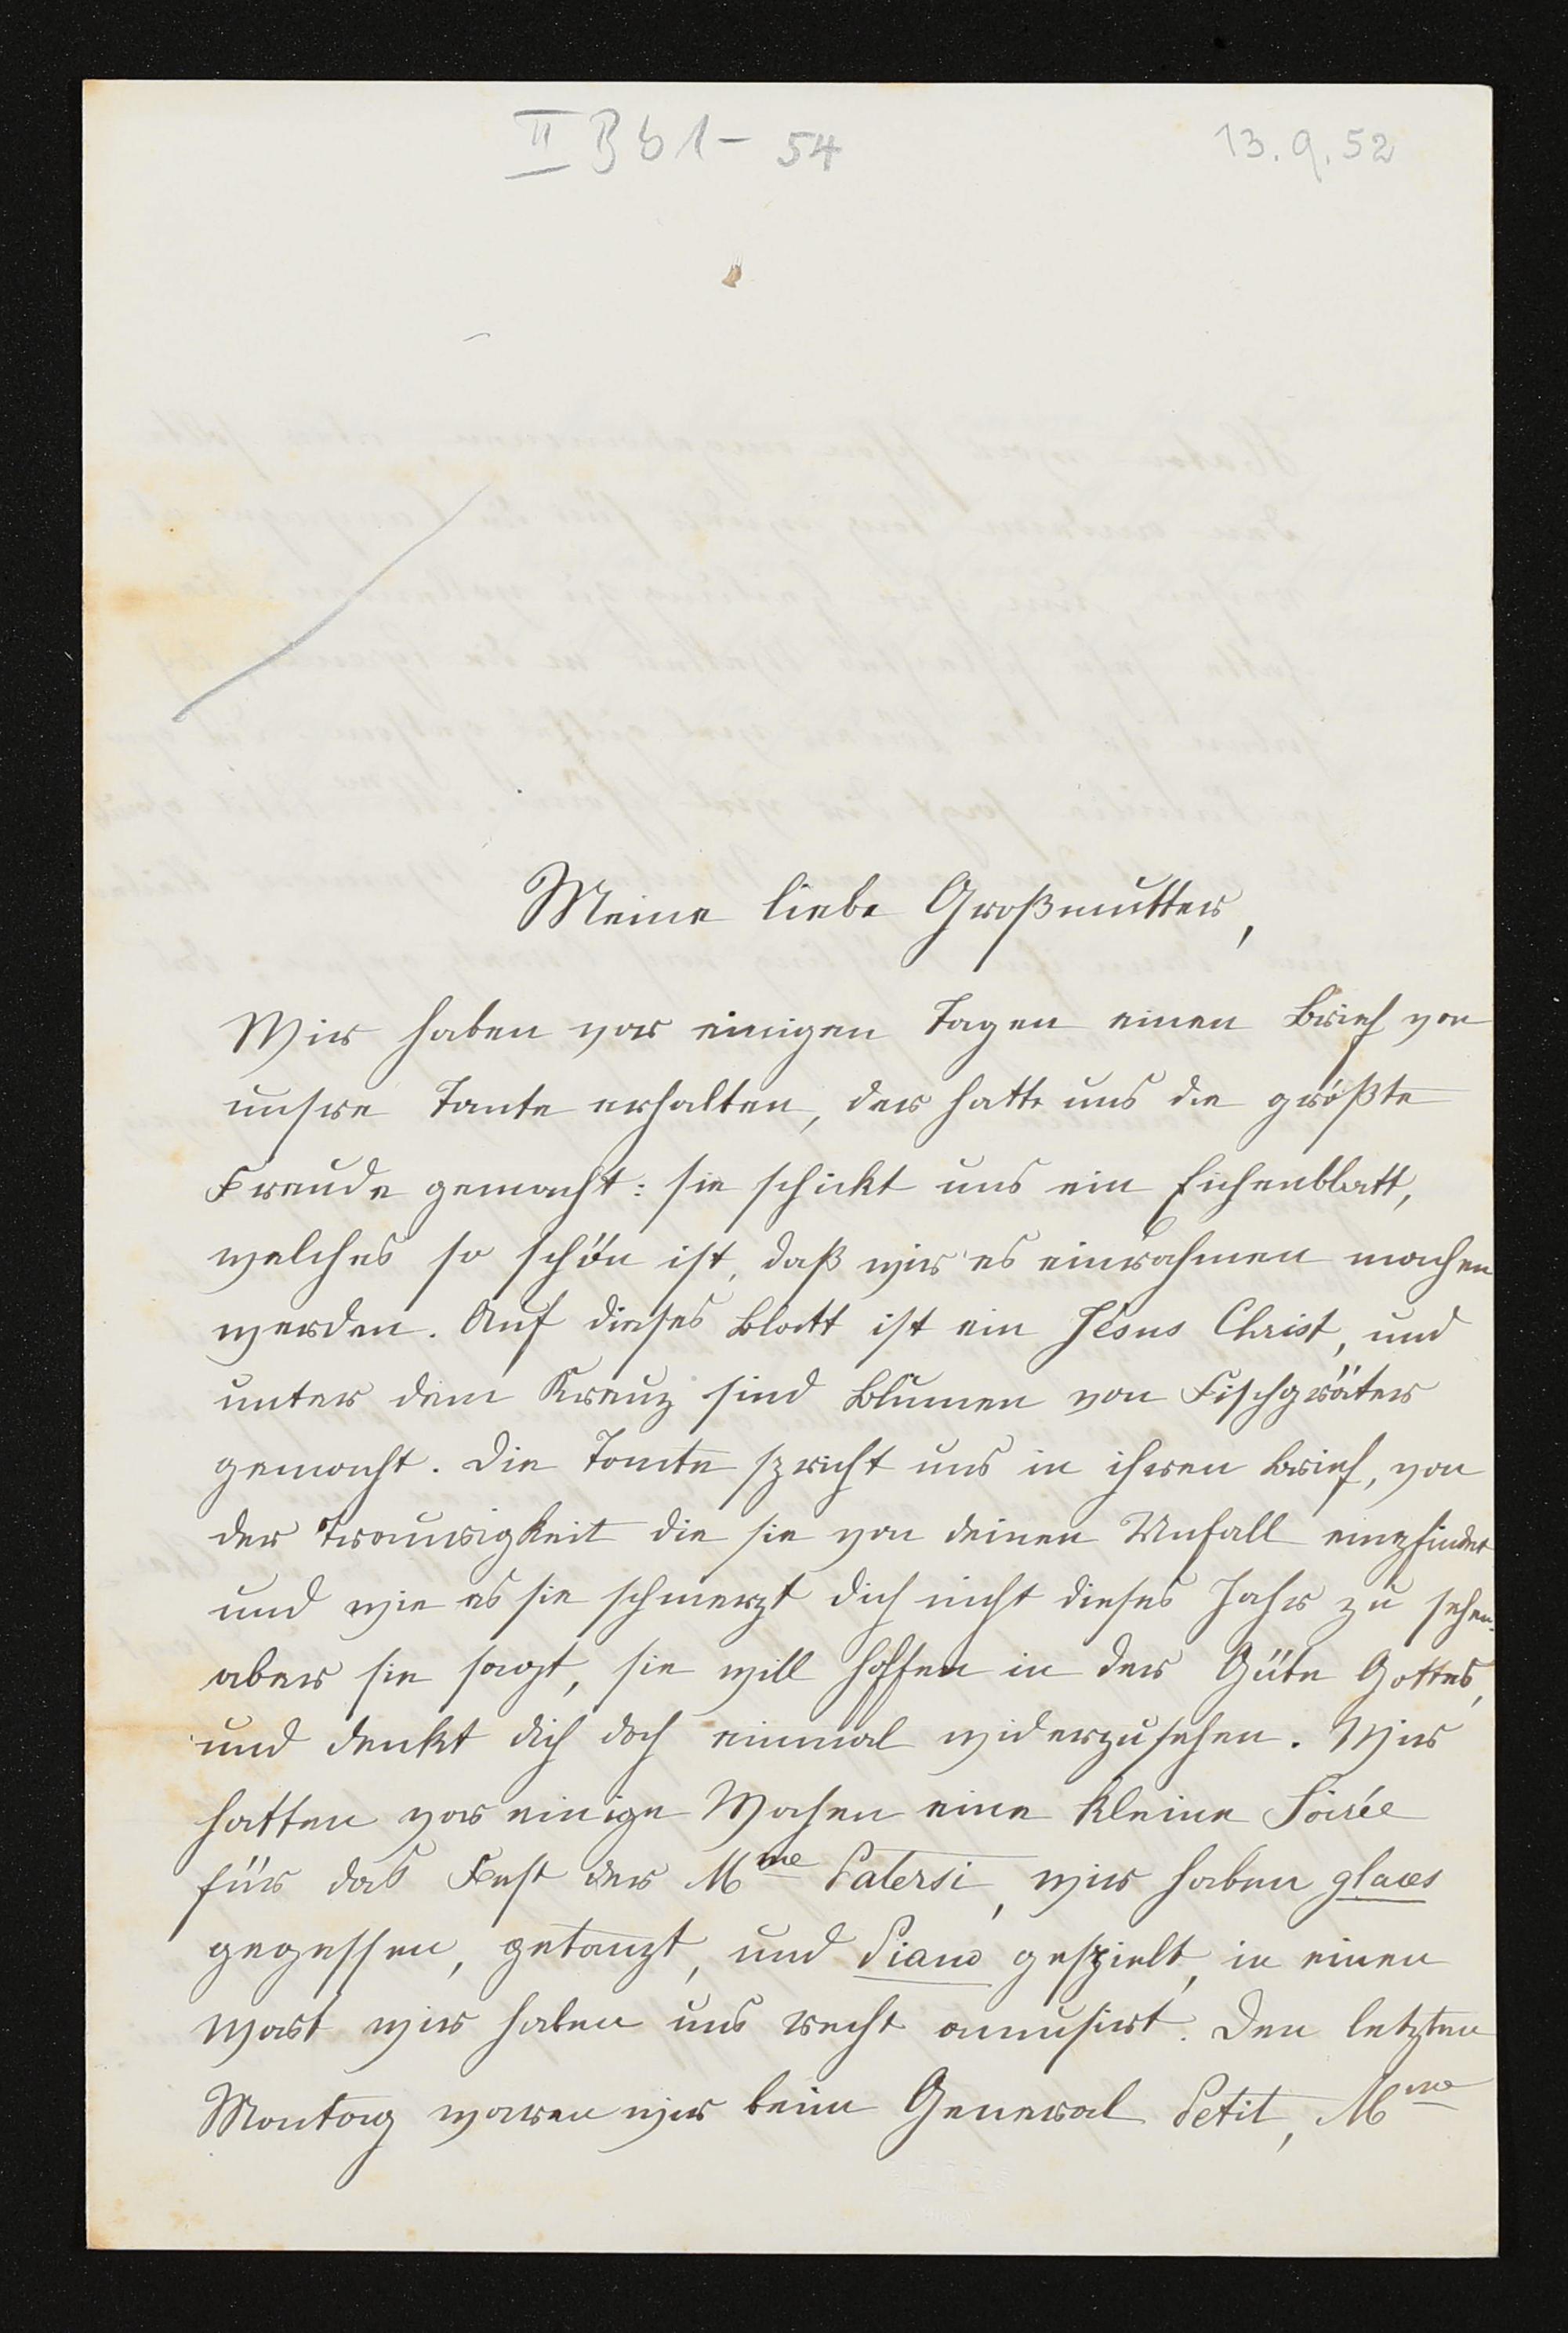 II B b 1 - 54
13. 9. 52
Meine liebe Großmutter,
Wir haben vor einigen Tagen einen Brief von
unsre Tante erhalten, der hatte uns die größte
Freude gemacht: sie schickt uns ein Eichenblatt,
welches so schön ist, daß wir es einrahmen machen
werden. Auf dieses Blatt ist ein Jésus Christ, und
unter dem Kreuz sind Blumen von Fischgräter
gemacht. Die Tante spricht uns in ihren Brief, von
der Traurigkeit die sie von deinen Unfall empfindet
und wie es sie schmerzt dich nicht dieses Jahr zu sehen.
aber sie sagt, sie will hoffen in der Güte Gottes,
und denkt dich doch einmal widerzusehen. Wir
hatten vor einige Wochen eine kleine Soirée
für das Fest der Mme Patersi, wir haben glaces
gegessen, getanzt, und Piano gespielt, in einen
Wort wir haben uns recht amusirt. Den letzten
Montag waren wir beim General Petit, Mme